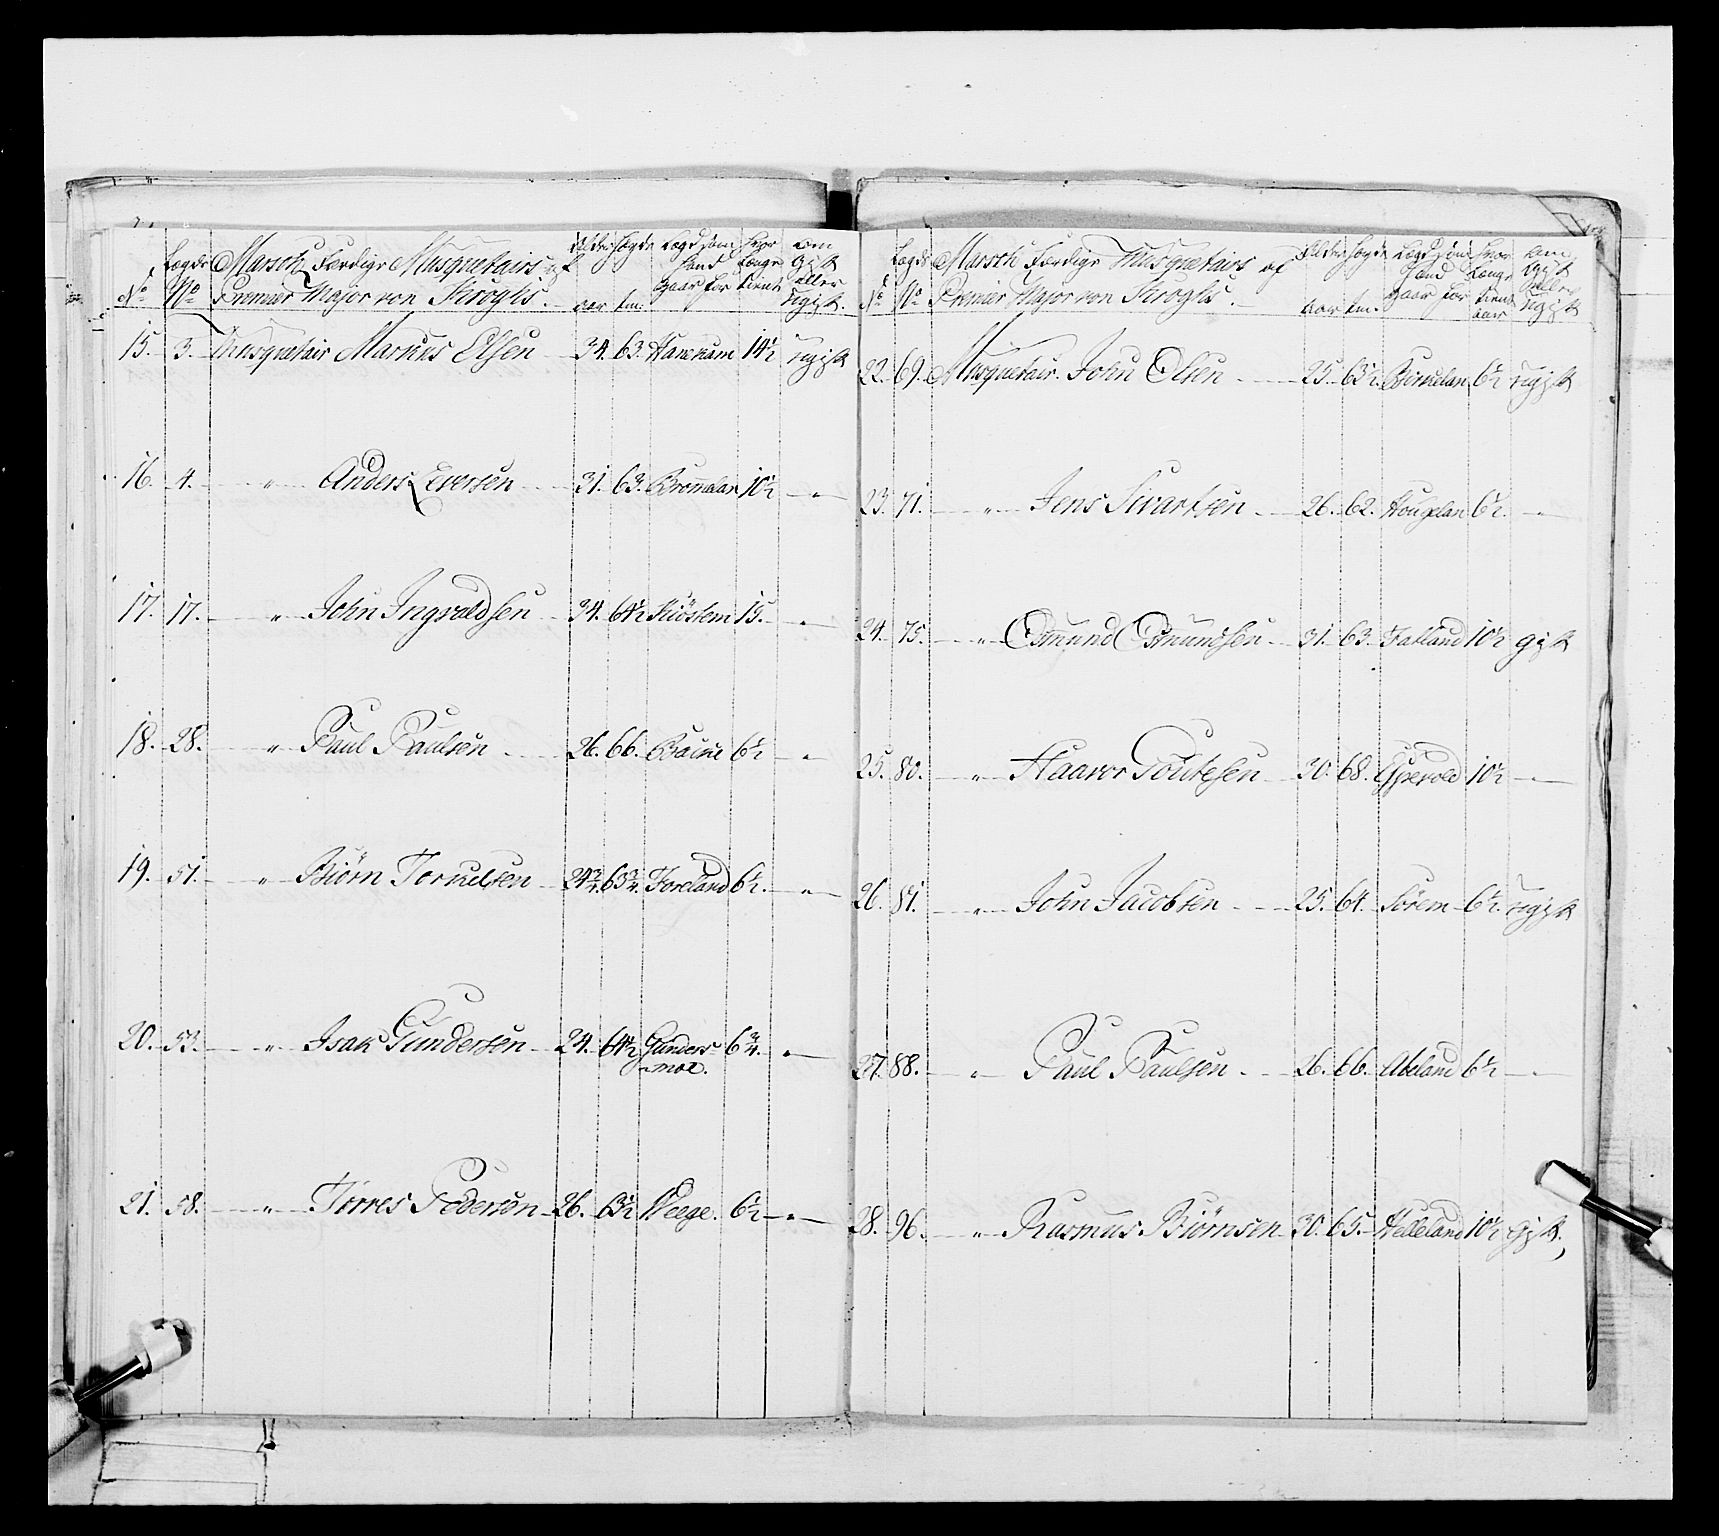 No Lægds No Marsch Færdige Musquetairs af Premier Major von Kroghs. Alder aar Høyde tm. Lægd som hand gaar for Hvor længe tient om Gift eller ugift
15. 3. Musquetair Markus Elsen 34. 63. 14½ ugift
16. 4. " Anders Eversen 31. 63. 10½ "
17. 17. " John Ingvaldsen 34. 64½ 15. "
18. 28. " Paul Paulsen 26. 66. Backe 6½ "
19. 51. " Biörn Torkelsen 24¾ 63¾ Foreland 6½. "
20. 53. " Isak Gundersen 24. 64½ Gunders- 6¾. "
moe.
21. 58. " Törres Pedersen 26. 63½ Weege. 6½ "
No Lægds No Marsch Færdige Musquetairs af Premier Major von Kroghs. Alder aar Høyde tm. Lægd som hand gaar for Hvor længe tient aar om Gift eller ugift
22. 69. Musquetair John Olsen 25. 63½. Birkelan 6½ ugift
23. 71. " Jens Sivartsen 26. 62. Hougelan 6½. "
24. 75. " Osmund Osmundsen 31. 63. Fatland 10½ gift
25. 80. " Haavor Toutesen 30. 68. Espevold 10½ "
26. 81. " John Jacobsen 25. 64. Sörem 6½. ugift
27. 88. " Paul Paulsen 26. 66. Abeland 6½ "
28. 96. " Rasmus Biörnsen 30. 65. Helleland 10½ gift.